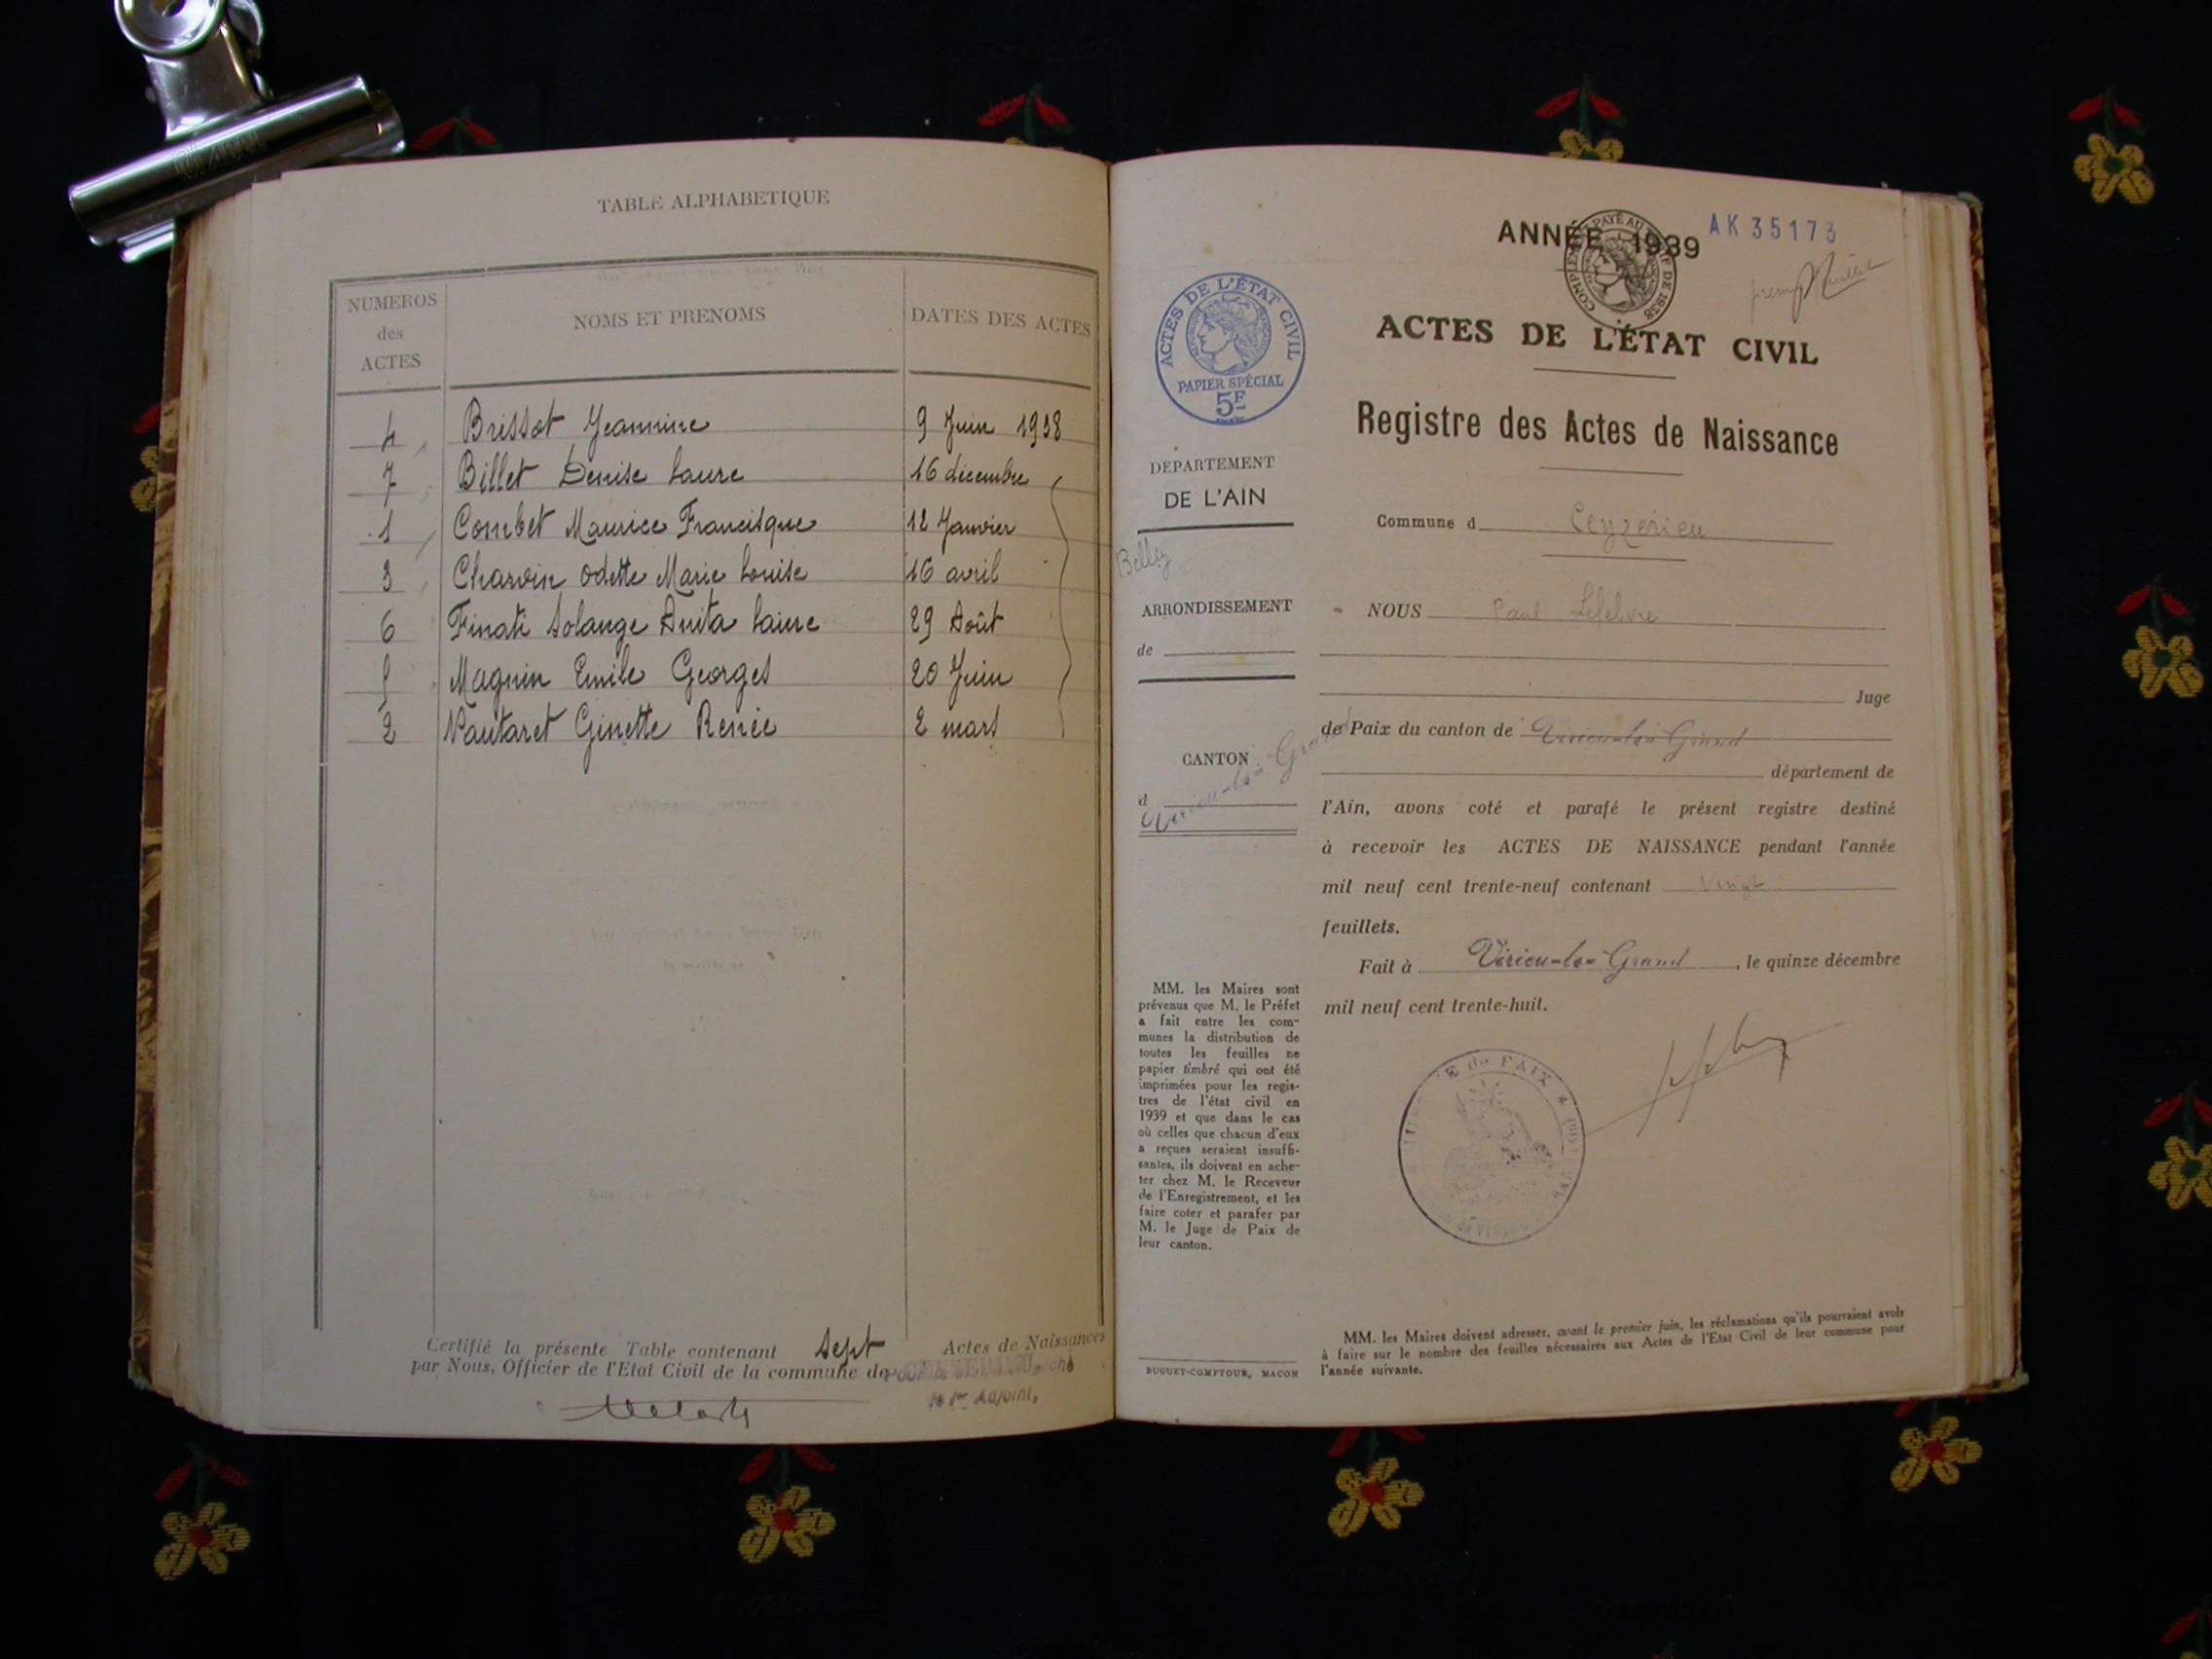 TABLE ALPHABETIQUE
NUMEROS
des
ACTES
NOMS ET PRENOMS
DATES DES ACTES
4 Brissot Jeannine 9 Juin 1938
7 Billet Denise Laure 16 décembre
1 Combet Maurice Francisque 12 Janvier
3 Charvin Odette Marie Louise 16 avril
6 Finati Solange Anita 29 Août
5 Magnin Emile Georges 20 Juin
2 Vautaret Ginette Renée 2 mars
Certifié la présente Table contenant Sept Actes de Naissances
par Nous, Officier de l'Etat Civil de la commune de
le 1er Adjoint,
ANNÉE 1939
AK 35173
ACTES DE L'ÉTAT CIVIL
PAPIER SPÉCIAL
5F
ACTES DE L'ÉTAT CIVIL
Registre des Actes de Naissance
DEPARTEMENT
DE L'AIN
Commune d Ceyzérieu
Belley
ARRONDISSEMENT
de
NOUS Paul Lefebvre
Juge
de Paix du canton de Virieu-le-Grand
CANTON
d Virieu-le-Grand
département de
l'Ain, avons coté et parafé le présent registre destiné
à recevoir les ACTES DE NAISSANCE pendant l'année
mil neuf cent trente-neuf contenant Vingt
feuillets.
Fait à Virieu-le-Grand, le quinze décembre
mil neuf cent trente-huit.
MM. les Maires sont
prévenus que M. le Préfet
a fait entre les com-
munes la distribution de
toutes les feuilles ne
papier timbré qui ont été
imprimées pour les regis-
tres de l'état civil en
1939 et que dans le cas
où celles que chacun d'eux
a reçues seraient insuffi-
santes, ils doivent en ache-
ter chez M. le Receveur
de l'Enregistrement, et les
faire coter et parafer par
M. le Juge de Paix de
leur canton.
BUGUET-COMPTOUR, MACON
MM. les Maires doivent adresser, avant le premier juin, les réclamations qu'ils pourraient avoir
à faire sur le nombre des feuilles nécessaires aux Actes de l'Etat Civil de leur commune pour
l'année suivante.